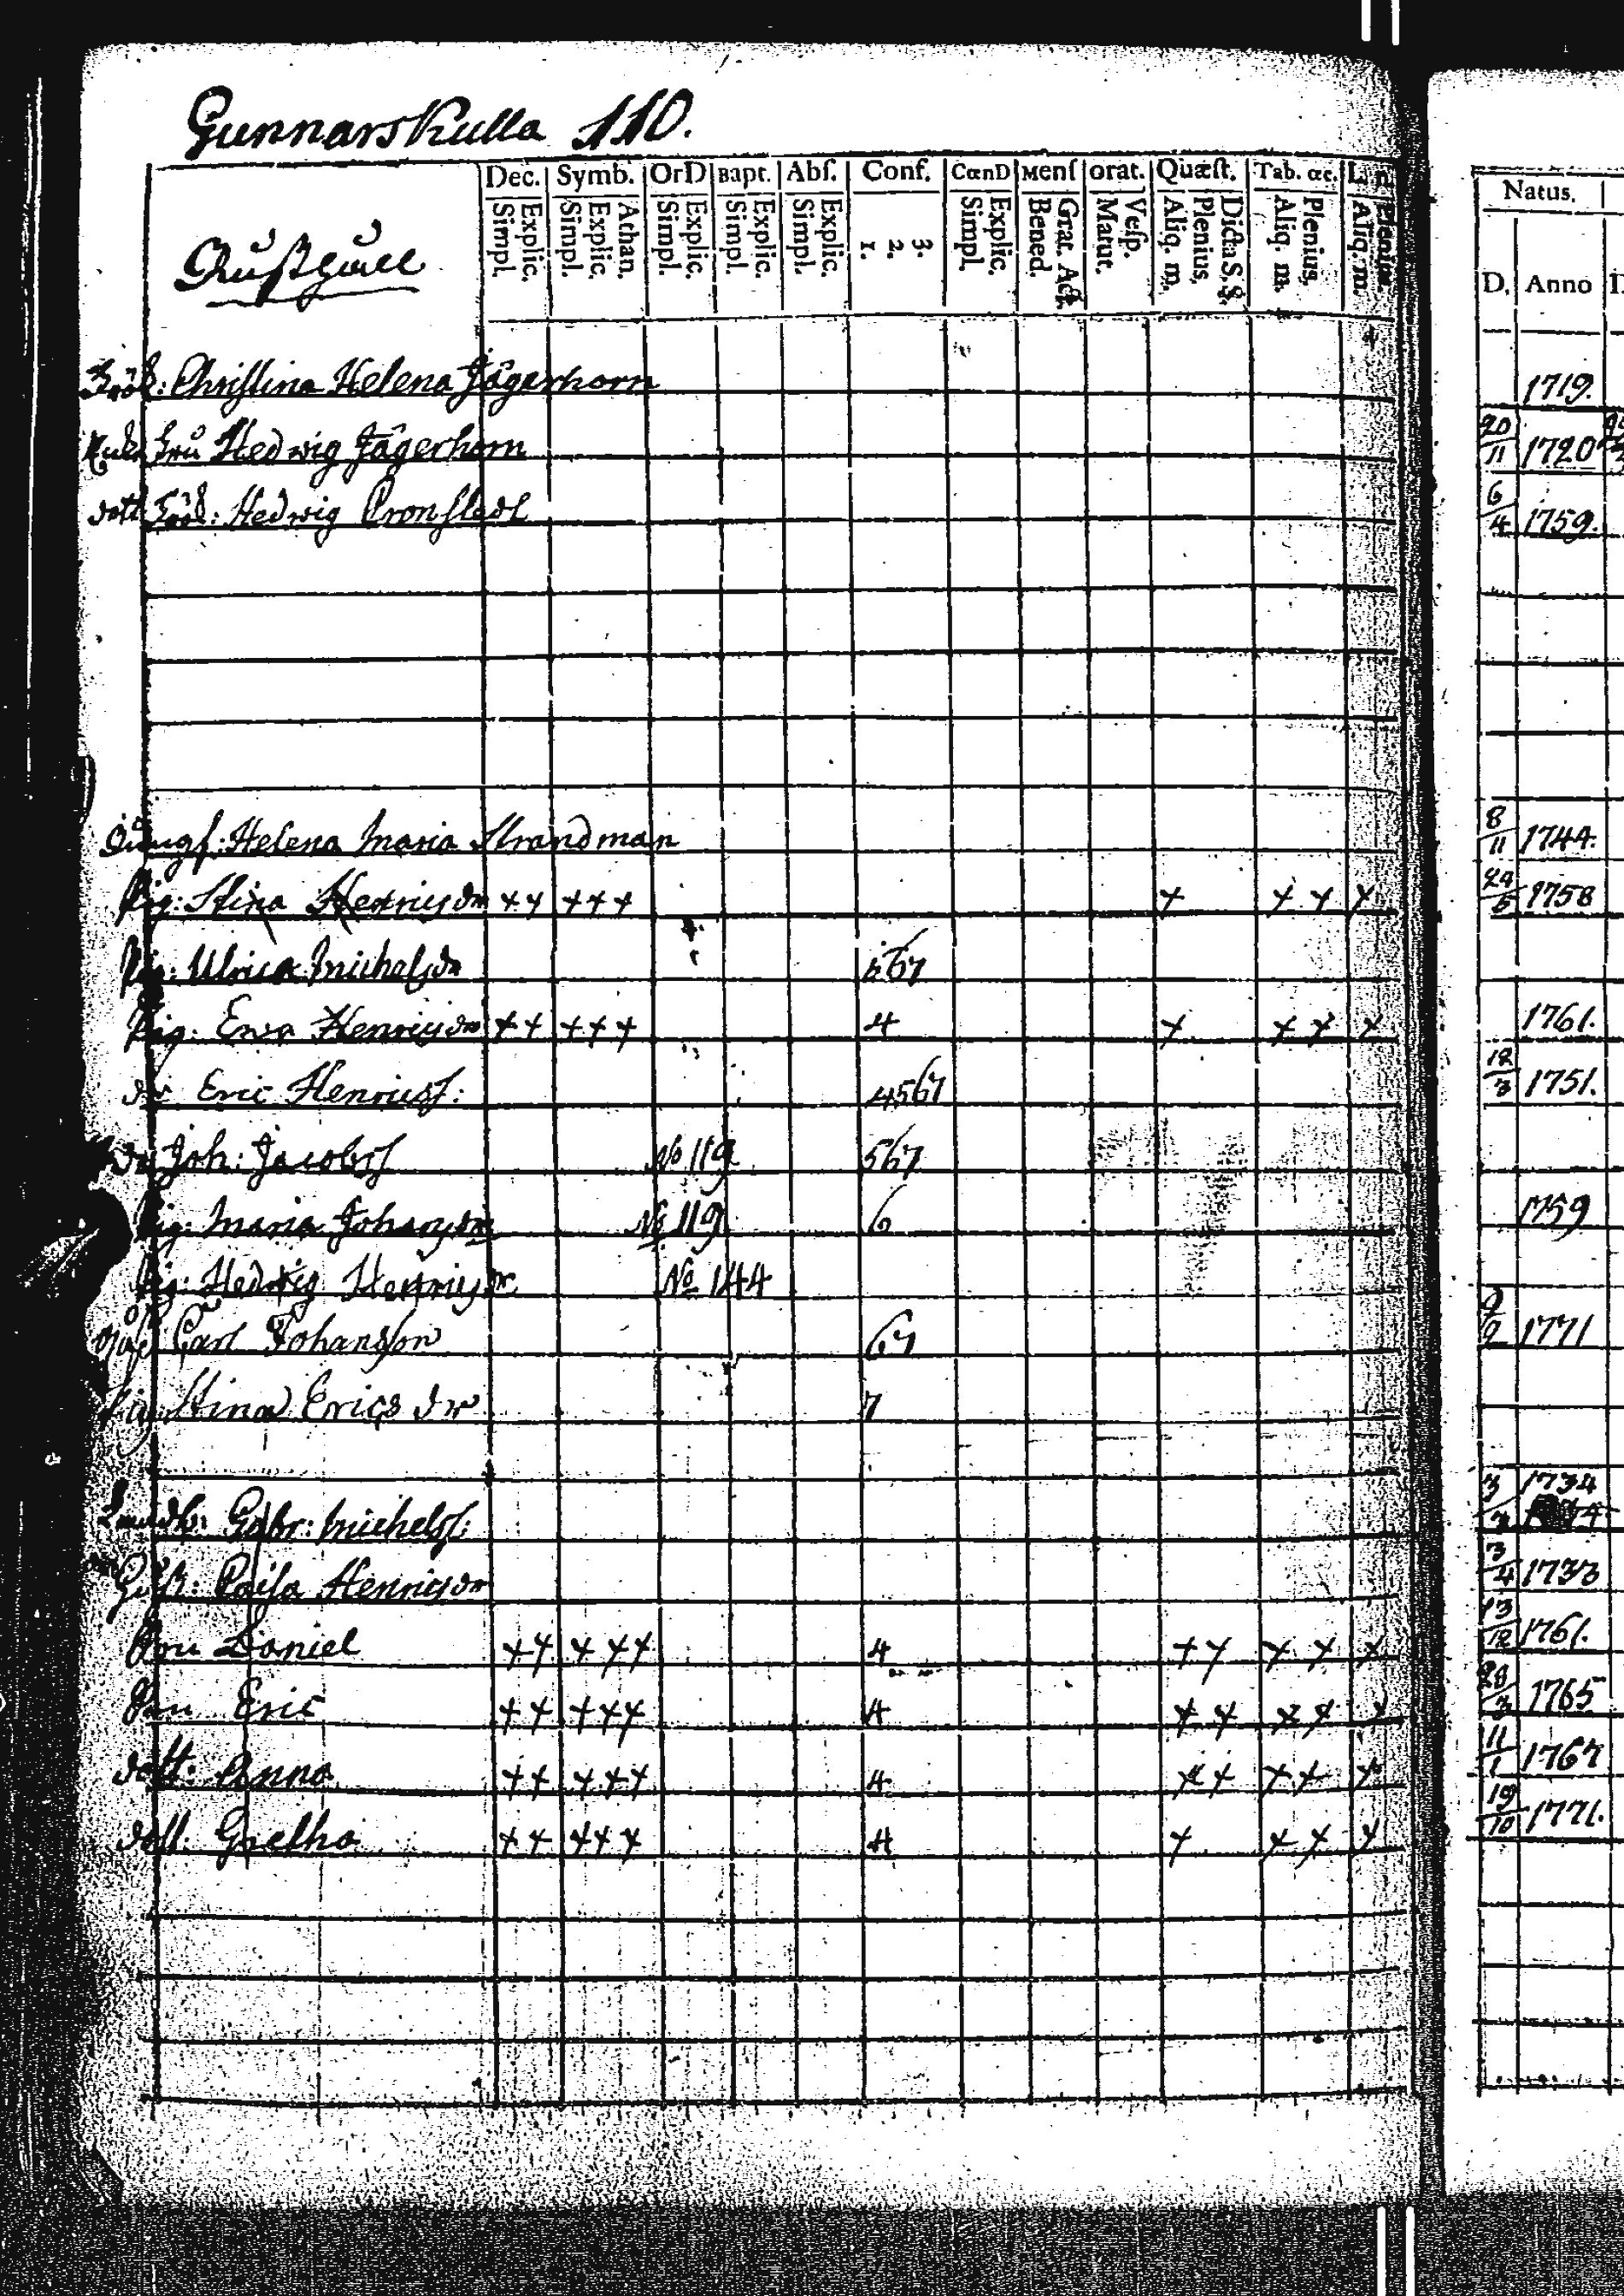 Gunnarskulla 110.
Dec. Symb. OrD Bapt. Abſ. Conf. CœnD Menſ orat. Quæſt. Tab. œc. Natus.
Simpl. Explic. Simpl. Explic. Athan. Simpl. Explic. Simpl. Explic. Simpl. Explic. 1. 2. 3. Simpl. Explic. Bened. Grat. Act. Matut. Veſp. Aliq. m. Plenius, Dicta S. S. Aliq. m. Plenius, Aliq. m. Plenius. D. Anno
Fröк: Christina Helena Jägerhorn 1719.
Fru Hedwig Jägerhorn 20/11 1720
dott Frök: Hedwig Cronstedt 6/4 1759.
Jungf: Helena Maria Strandman 8/11 1744.
Pig: Stina Henricsdr ++ +++ + + + + 24/5 1758
Pig: Ulrica Michelsdr 567
Pig: Eva Henricsdr ++ +++ 4 + + + + 1761.
dr Eric Henricss: 4567 12/3 1751.
dr Joh: Jacobss No 119 567
Pig: Maria Johansdr No 119 6 1759
Pig: Hedwig Henricsdr No 144
Carl Johansson 67 9/2 1771
Stina Erics dr 7
Gabr: Michelss: 3 1734
Hust: Caisa Henricsdr 3/4 1733
Son Daniel ++ +++ 4 ++ + + + 13/12 1761.
Son Eric ++ +++ 4 ++ ++ + 28/3 1765
dott: Anna ++ +++ 4 ++ ++ + 11/1 1767
dott: Gretha ++ +++ 4 + + + + 19/10 1771.